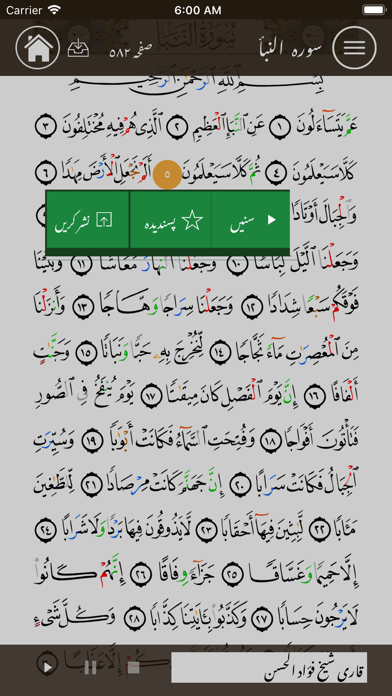 Carrier 6:00 AM
سورہ النبأ صفحہ ۵۸۲
سُورَةُ النَّبَإِ
بِسْمِ ٱللَّهِ ٱلرَّحْمَٰنِ ٱلرَّحِيمِ
عَمَّ يَتَسَآءَلُونَ ١ عَنِ ٱلنَّبَإِ ٱلْعَظِيمِ ٢ ٱلَّذِى هُمْ فِيهِ مُخْتَلِفُونَ ٣
كَلَّا سَيَعْلَمُونَ ٤ ثُمَّ كَلَّا سَيَعْلَمُونَ ٥ أَلَمْ نَجْعَلِ ٱلْأَرْضَ مِهَٰدًا ٦
وَٱلْجِبَالَ أَوْتَادًا
سنیں پسندیدہ نشر کریں
وَجَعَلْنَا ٱلَّيْلَ لِبَاسًا ١٠ وَجَعَلْنَا ٱلنَّهَارَ مَعَاشًا ١١ وَبَنَيْنَا
فَوْقَكُمْ سَبْعًا شِدَادًا ١٢ وَجَعَلْنَا سِرَاجًا وَهَّاجًا ١٣ وَأَنزَلْنَا
مِنَ ٱلْمُعْصِرَٰتِ مَآءً ثَجَّاجًا ١٤ لِّنُخْرِجَ بِهِۦ حَبًّا وَنَبَاتًا ١٥ وَجَنَّٰتٍ
أَلْفَافًا ١٦ إِنَّ يَوْمَ ٱلْفَصْلِ كَانَ مِيقَٰتًا ١٧ يَوْمَ يُنفَخُ فِى ٱلصُّورِ
فَتَأْتُونَ أَفْوَاجًا ١٨ وَفُتِحَتِ ٱلسَّمَآءُ فَكَانَتْ أَبْوَٰبًا ١٩ وَسُيِّرَتِ
ٱلْجِبَالُ فَكَانَتْ سَرَابًا ٢٠ إِنَّ جَهَنَّمَ كَانَتْ مِرْصَادًا ٢١ لِّلطَّٰغِينَ
مَـَٔابًا ٢٢ لَّٰبِثِينَ فِيهَآ أَحْقَابًا ٢٣ لَّا يَذُوقُونَ فِيهَا بَرْدًا وَلَا شَرَابًا ٢٤
إِلَّا حَمِيمًا وَغَسَّاقًا ٢٥ جَزَآءً وِفَاقًا ٢٦ إِنَّهُمْ كَانُوا۟
لَا يَرْجُونَ حِسَابًا ٢٧ وَكَذَّبُوا۟ بِـَٔايَٰتِنَا كِذَّابًا ٢٨ وَكُلَّ شَىْءٍ
قاری شیخ فؤاد الحسن